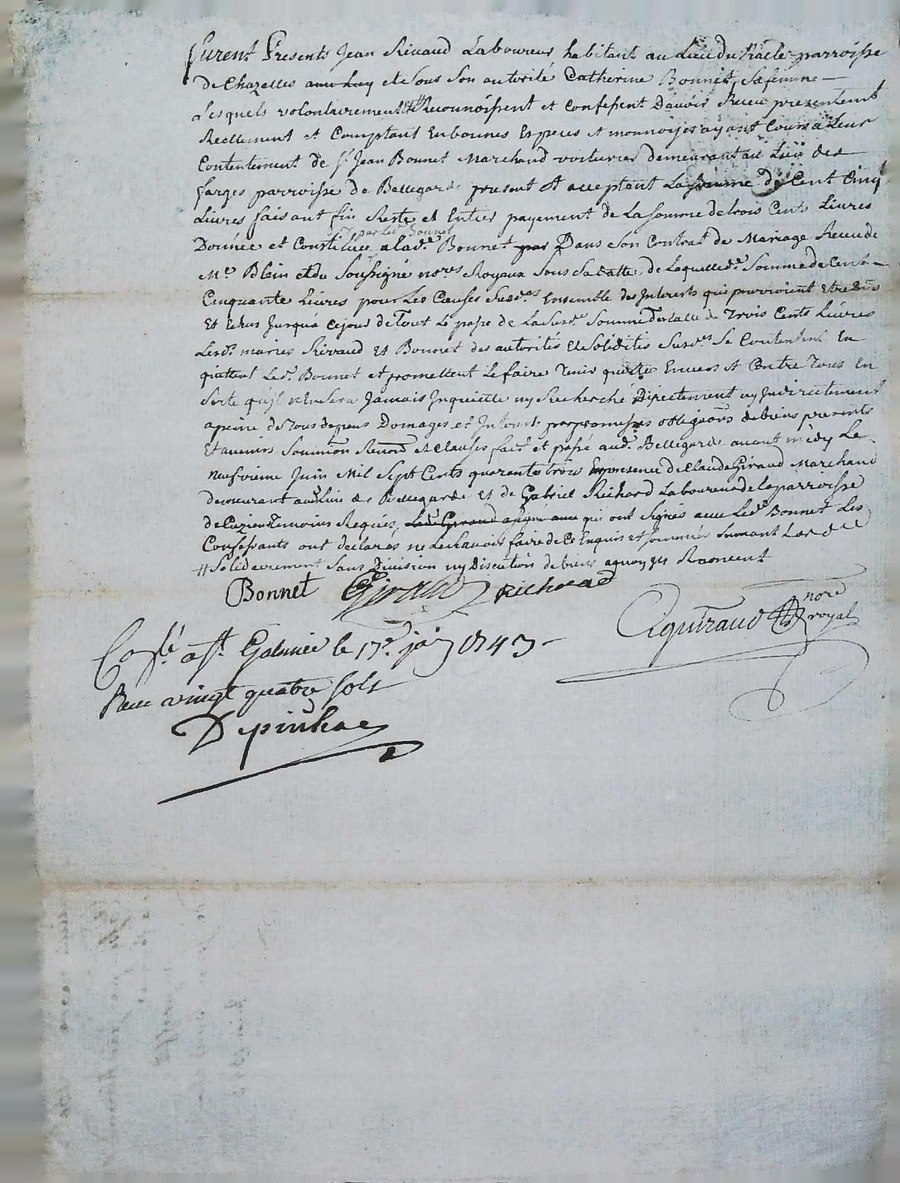 furent Presents Jean Rivaud Laboureur habitant au Lieu du parroisse
de Chazelles et de Sous Son autorité Catherine Bonnet, Safemme
Lesquels volontairement Reconnoissent et Confessent Davoir Receu presentemt
Reellement et Comptant En bonnes Especes et monnoyes ayant Cours a Leur
Contentement de Sr. Jean Bonnet Marchand voiturier demeurant au Lieu des
farges parroisse de Bellegarde present Et acceptant La somme de Cent Cinq.
Livres faisant fin Reste et Entier payement de La somme de trois Cents Livres
Donnée et Constituée a lade. Bonnet par led. Bonnet Dans Son Contrat de Mariage Receu de
Me. Blain et du Soussigné nores Royaux Sous Sa datte, de Laquelle de. Somme de Cent
Cinquante Livres pour Les Causes Susd.es Ensemble des Interests qui pourroient Etre
Et Echus Jusqua Cejour de Tout Le passé de La Susde. Somme de trois Cents Livres
Lesd. mariés Rivaud Et Bonnet des autorités Et Solidités Susd.es Se Contentent En
quittent Led. Bonnet et promettent Le faire Tenir quitte Envers Et Contre Tous En
Sorte quil nEnsera Jamais Inquietté ny Recherché Directement ny Indirectement
apeine de Tous depens Domages et Interest par promesses obligaons de biens presents
Et avenirs Soumion Renon. Et clauses fait et passé aud. Bellegarde avant midy Le
Neufvieme Juin Mil Sept Cents quarente trois En presence de Claude Giraud Marchand
demeurant aud. Lieu de Bellegarde et de Gabriel Richard Laboureur de la parroisse
de Cuzieu Temoins Requis, qui ont signés avec Led. Bonnet Les
Confessants ont declarés ne Le Scavoir faire de Ce Enquis et Sommés
# Solidairement Sans Division ny Discution de biens aquoy Renoncent
Bonnet Giraud Richard
Aguiraud nore royal
Conlé a St. Galmier le 17e. juin 1743
Receu vingt quatre sols
Depinhac